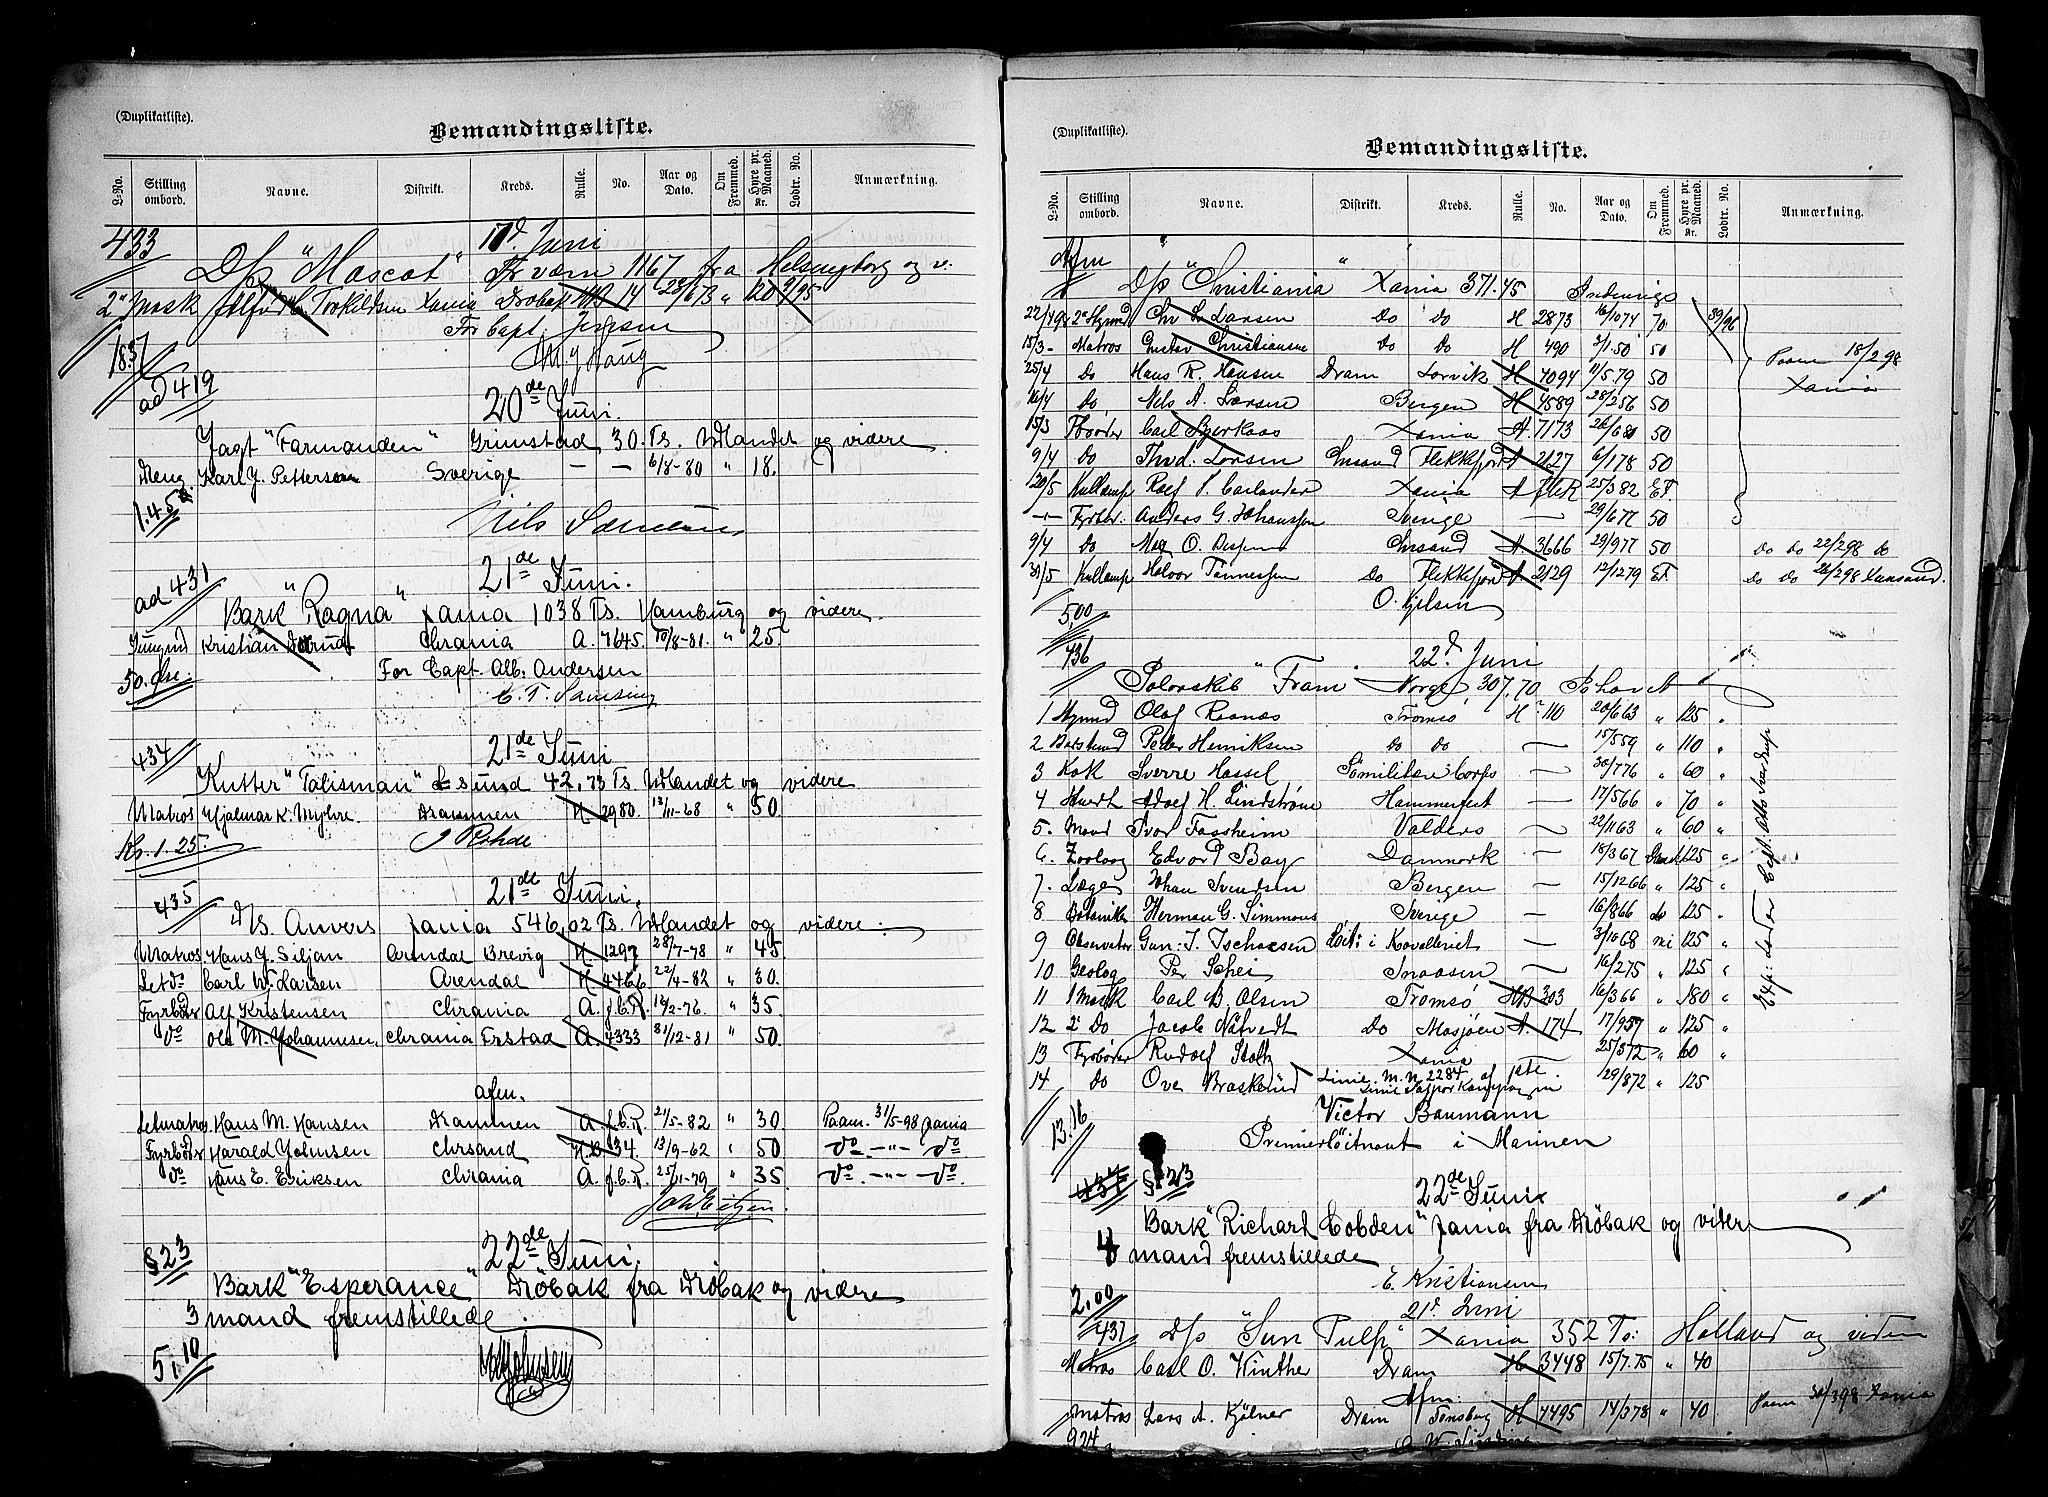 (Duplikatliste).
Bemandingsliste.
L-No. Stilling ombord. Navne. Distrikt. Kreds. Rulle. No. Aar og Dato. Om Fremmed. Hyre pr. Maaned. Kr. Lodtr. No. Anmærkning.
433 17d Juni
D/s "Mascot" 1167 fra Helsingborg og v.
2' Mask Torkildsen Xania Drøbak 14 23/6 73 " 120 9/95
For Capt. Jensen
1.87
ad 419 20de Juni.
Jagt "Farmanden" Grimstad 30 Ts. Udlandet og videre
Karl J. Petterson Sverige — — 6/8-80 " 18.
1.45
Nils
ad 431 21de Juni.
Bark "Ragna" Xania 1038 Ts. Hamburg og videre
Jungmd Kristian Chrania A. 7645 10/8-81. " 25.
50. Øre. For Capt. Alb. Andersen
434 21de Juni
Kutter "Talisman" sund 42,73 Ts. Udlandet og videre
Matros Hjalmar K. Myhre. Drammen H 2980. 12/11-68 " 50
Kr. 1.25. J Rohde
435 21de Juni.
D/s. Anvers Xania 546,02 Ts. Udlandet og videre.
Matros Hans J. Siljan Arendal Brevig H 1297 28/7-78 " 45.
Let do Carl W. Larsen Arendal H 4466 22/4-82 " 30.
Fyrbøder Alf Kristensen Chrania A. f.C.R. 12/2-76. " 35.
do Ole M. Johannesen. Chrania Erstad A. 4333 31/12-81 " 50.
afm.
Letmatros Hans M. Hansen Drammen A f.C.R. 21/5-82 " 30 Paam. 31/5-98 Xania
Fyrbøder Harald Johnsen Chrsand 134. 13/9-62 " 50 do —"— do
do Hans E. Eriksen Chrania A. f.C.R. 25/11-79 " 35. do —"— do
§ 23 22de Juni.
Bark "Esperance" Drøbak fra Drøbak og videre
3 mand fremstillede.
5,10
(Duplikatliste).
Bemandingsliste.
L-No. Stilling ombord. Navne. Distrikt. Kreds. Rulle. No. Aar og Dato. Om Fremmed. Hyre pr. Maaned. Kr. Lodtr. No. Anmærkning.
Afm
D/s "Christiania" Xania 371.45 Indenrigs
22/4 98 2' Styrmd Chr L Larsen Do Do H 2873 16/10 74 70 39/96
15/3 - Matros Gustav Christiansen Do Do H 490 3/1 50 50
25/4 Do Hans R. Hansen Dram Lorvik H 7094 11/5 79 50 Paam 18/2.98
Xania
16/4 Do Nils A. Larsen Bergen H 4589 28/2 56 50
15/3 Carl Bjerkaas Xania A. 7173 26/6 80 50
9/4 Do Thvd. Larsen Chrsand Flekkefjord A 2127 6/1 78 50
20/5 Kullemp Rolf S. Carlander Xania A f.C.R 25/3 82 EF
—"— Fyrbød: Anders G. Johanssen Sverige — 29/6 77 50
9/4 Do O. Chrsand A 3666 29/9 77 50 Do do 22/2 98 do
30/5 Kullemp Halvor Tønnessen Do Flekkefjord A 2129 12/12 79 EF Do do 26/2 98 Xansand.
5,00
436 22d Juni
Polarskib "Fram" Norge 307,70 Ishavet
1 Styrmd Oluf Raanes Tromsø H' 110 20/6 63 " 125 "
2 Baatsmd Peder Henriksen do do — 15/5 59 " 110 "
3 Kok Sverre Hassel Sømilitære Corps — 30/7 76 " 60 "
4 Stuert Adolf H. Lindstrøm Hammerfest — 17/5 66 " 70 "
5. Mand Ivar Fossheim Valders — 22/11 63 " 60 "
6. Zoolog Edvard Bay Danmark — 18/3 67 Dansk 125 "
7. Læge Johan Svendsen Bergen — 15/12 66 " 125 "
8 Botaniker Herman G. Simmons Sverige — 16/8 66 do 125 "
9 Observator Gun. I. Isachsen Løit: i Kavalleriet — 3/10 68 125 "
10 Geolog Per Schei Snaasen — 16/2 75 " 125 "
11 1 Mask Carl B. Olsen Tromsø 303 16/3 66 " 180 "
12 2' Do Jacob Nødtvedt Do Mosjøen A. 174 17/9 57 " 125 "
13 Fyrbøder Rudolf Stoltz Xania 25/3 72 " 60 "
14 Do Ove Braskerud Linie M. N. 2284 af 29/8 72 " 125
Victor Baumann
Premierløitnant i Marinen
13.16
437 § 23 22de Juni
Bark "Richart Cobden" Xania fra Drøbak og videre
4 mand fremstillede
E. Kristiansen
2,00
21d Juni
437 D/s "Sun Tulp" Xania 352 Ts: Holland og videre
Matros Carl O. Winther Dram H 3448 15/7.75 " 40
Afm.
Matros Lars A. Kjølner Dram Tønsberg H 7495 14/3 78 " 40 Paam 30/3 98 Xania